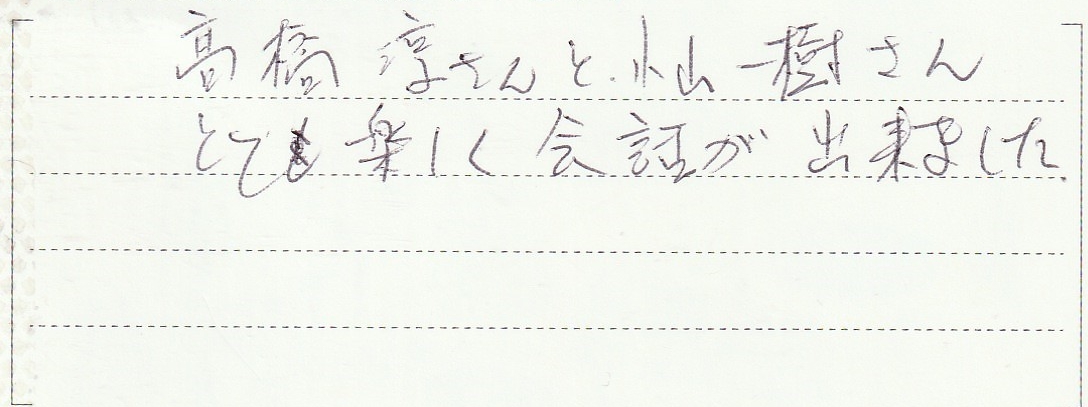 高橋 淳さんと.小山一樹さん
とても楽しく会話が出来ました.